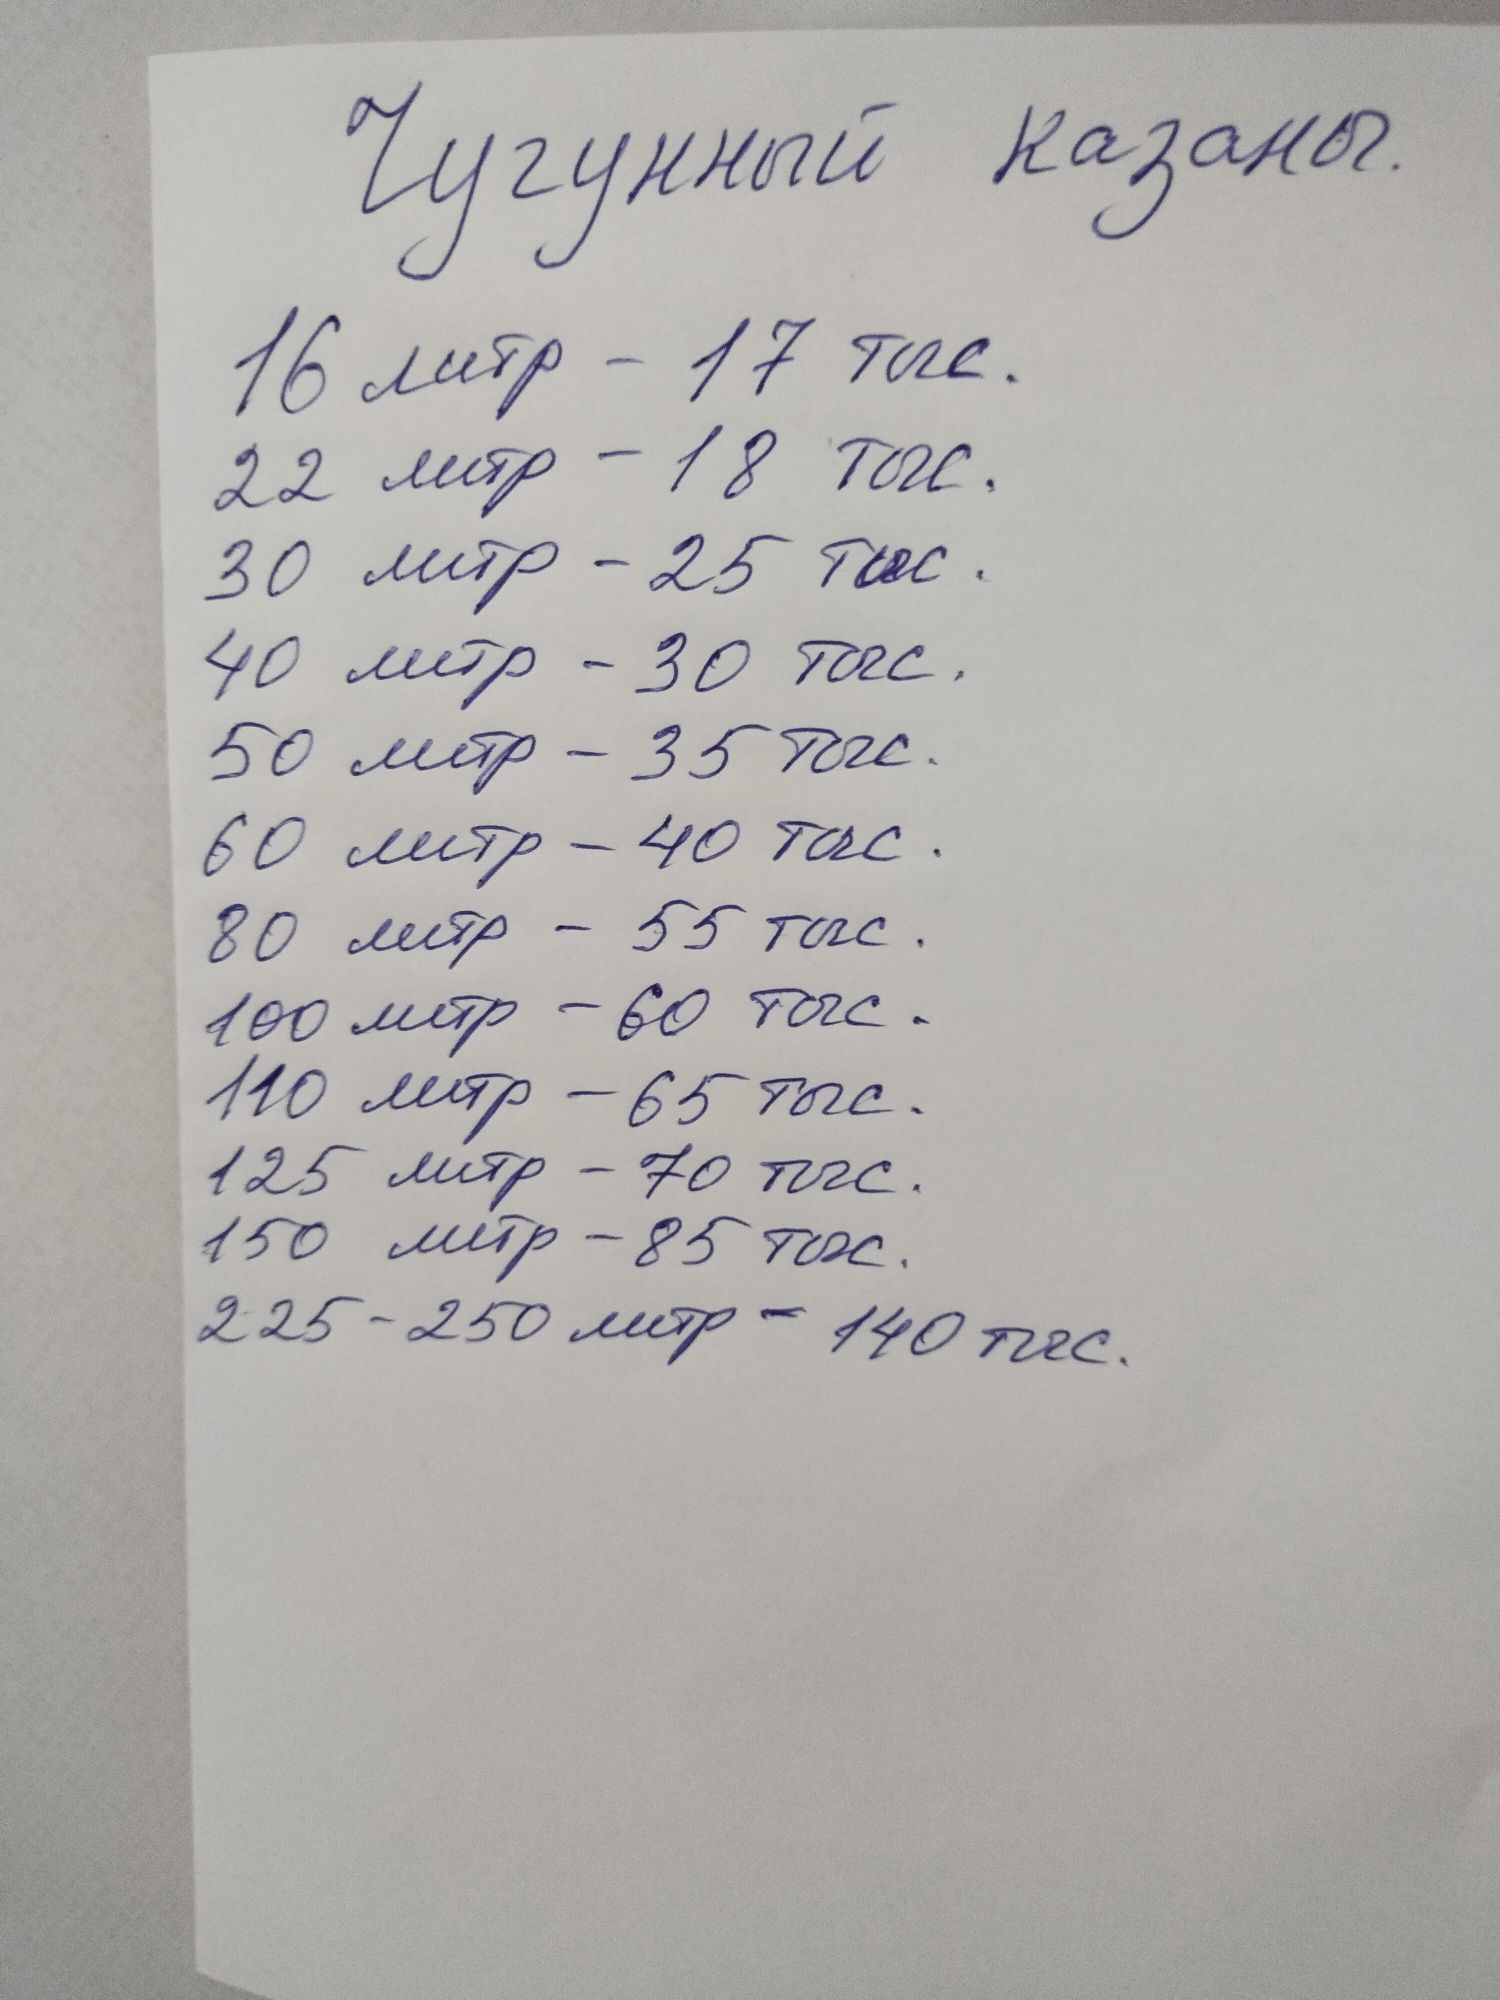 Чугунный казаны.
16 литр - 17 тыс.
22 литр - 18 тыс.
30 литр - 25 тыс.
40 литр - 30 тыс.
50 литр - 35 тыс.
60 литр - 40 тыс.
80 литр - 55 тыс.
100 литр - 60 тыс.
110 литр - 65 тыс.
125 литр - 70 тыс.
150 литр - 85 тыс.
225 - 250 литр - 140 тыс.